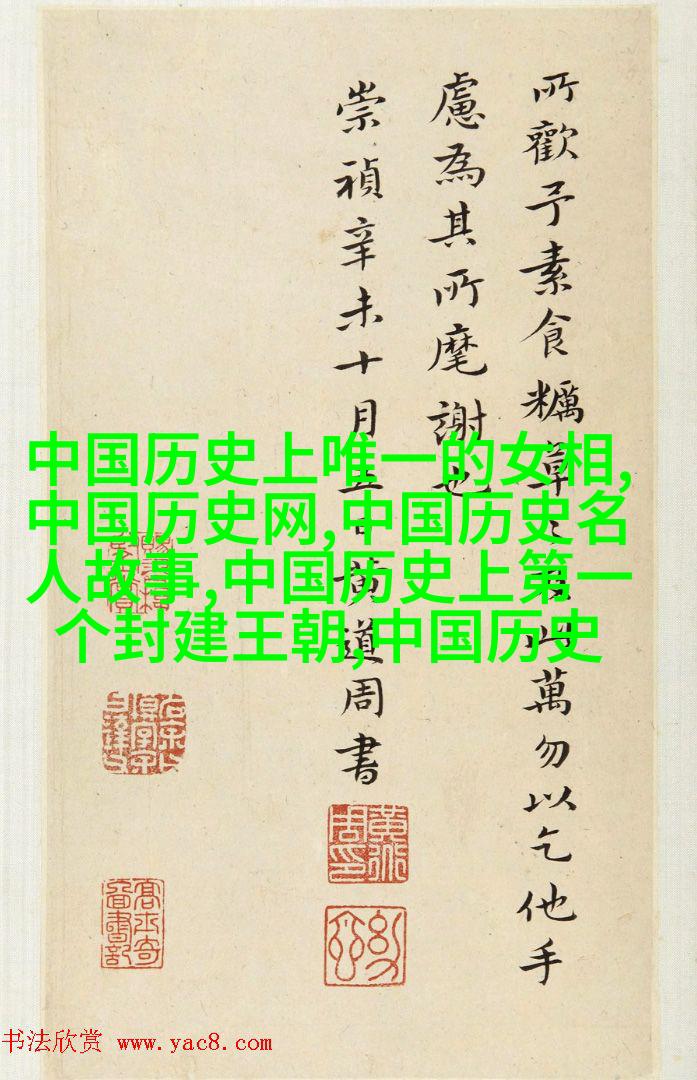 所歡予素食糲草此萬勿以乞他手
慮為其所麾謝也
崇禎辛未十月五日黃道周書
中国历史上唯一的女相,
中国历史网,中国历史名
人故事,中国历史上第一
个封建王朝,中国历史
高士奇圖書記
书法欣赏 www.yac8.com